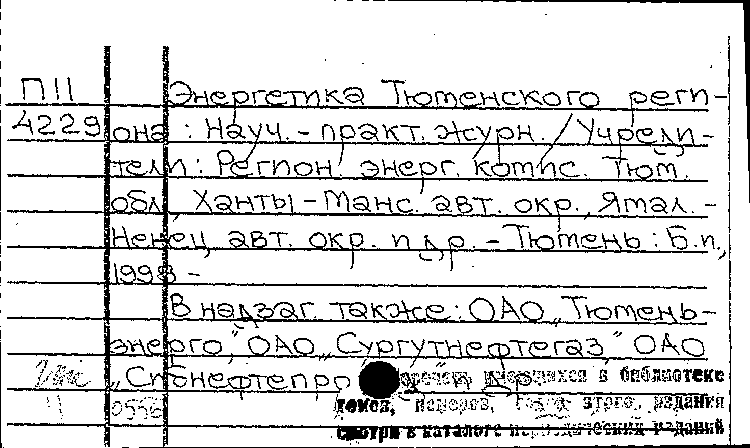 П11 Энергетика Тюменского реги-
4229 она : Науч.-практ. журн. / Учреди-
тели: Регион. энерг. комис. Тюм.
обл., Ханты-Манс. авт. окр., Ямал.-
Ненец. авт. окр. и др. - Тюмень : Б.и.,
1998 -
В надзаг. также: ОАО „Тюмень-
энерго", ОАО „Сургутнефтегаз", ОАО
„Сибнефтепро и др. в библиотеке
0556 томов, номеров, этого издания
смотри в каталоге периодических изданий